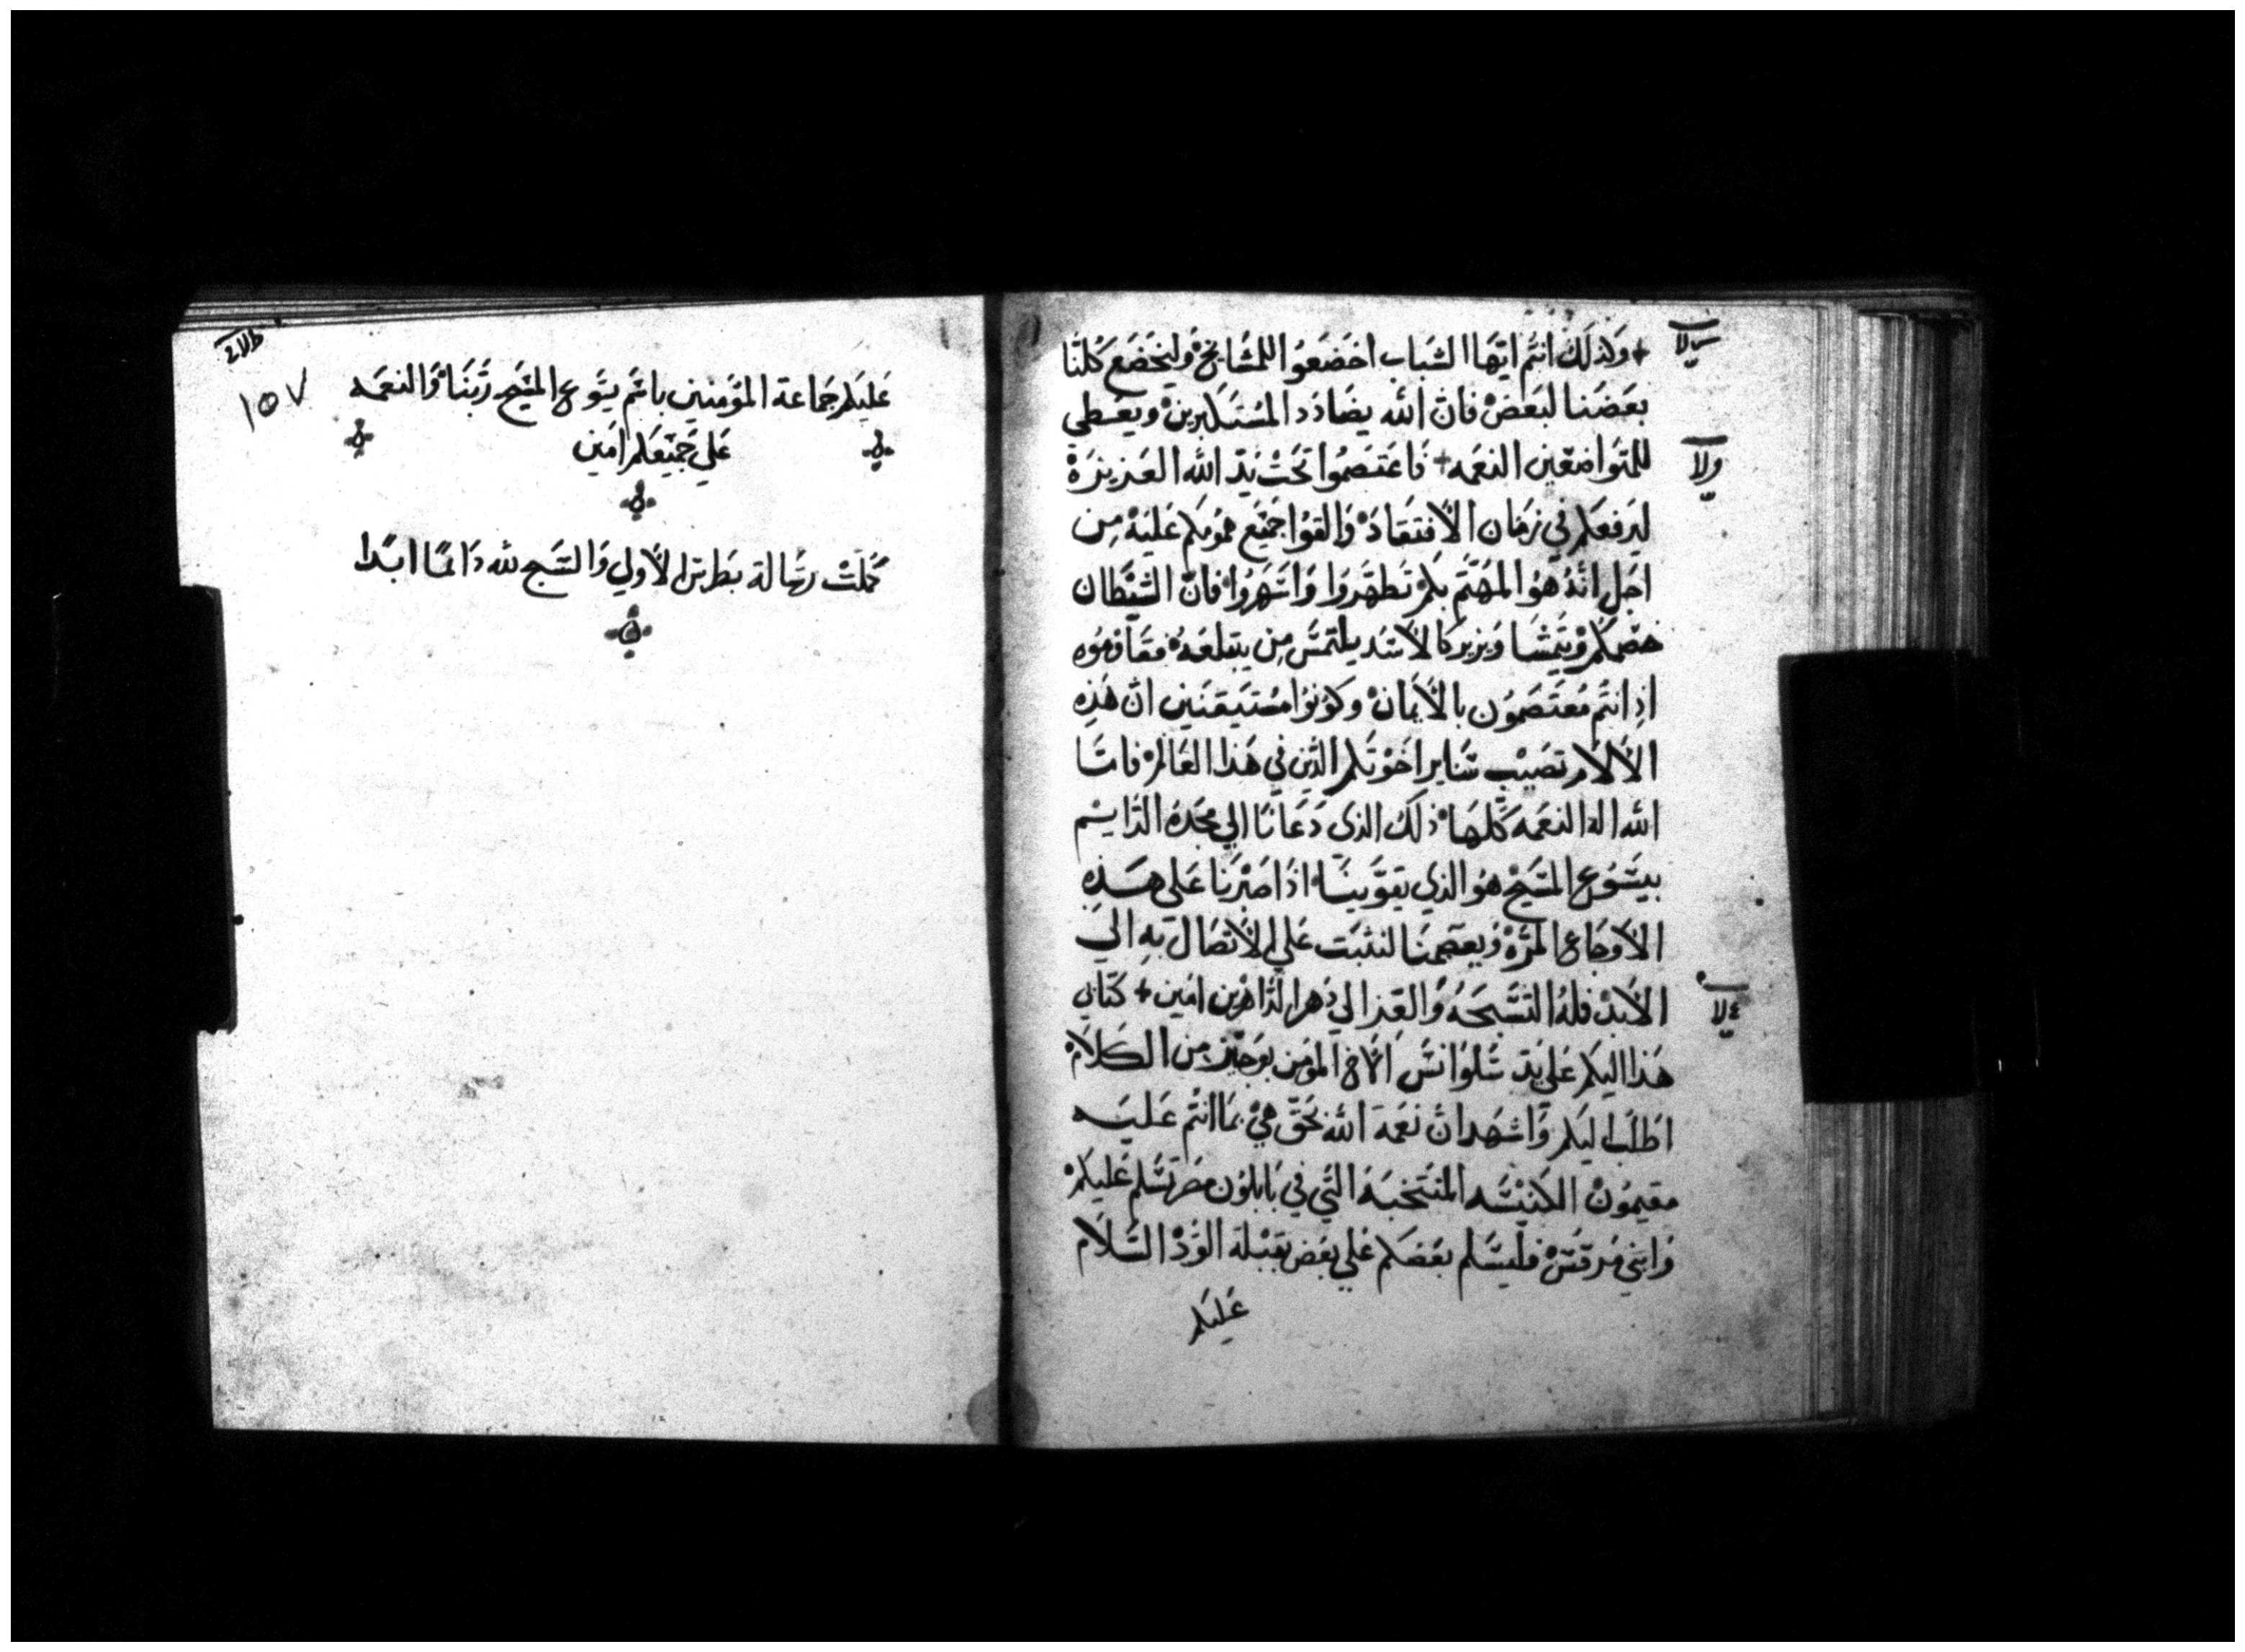 + وَلذلَكَ انتُم ايّهَا الشَباب اخضَعَوُا للمشَايخْ وَليَخضَع كُلنَا
بعَضَنا لبَعَضْ فانْ الله يضَادَد المسُتَكبرينْ ويعَطي
للمتوَاضعَين النعَمه + فَاعَتصَمُوا تحَتْ يَدّ الله العَزيزَةْ
ليَرفعَكم في زمَان الأفتقادْ وَالقوُا جَميَع همُومكم عَليَهْ مِن
اجَل انَهُ هوُ المهُتَم بكَمْ تَطهَروَا وَاسَهَروُا فانْ الشيَطَان
خصَمَكمْ وَيتمشَا وَيزير كالأسَد يلتمسَ مِن يبَتلعَهُ فقاومُوه
اذِ انتُم مُعتَصَموُن بالأيمَانْ وكوُنوُا مسُتَيقنَين انْ هَذِه
الألَام تصَيْب سَاير اخَوْتكم الذَين في هَذا العَالمْ فامَا
الله اله النعَمه كلهَا ذلَك الذي دَعَانا الي مجَدهُ الدَايم
بيسَوُع المسَيحْ هوُ الذي يقوَينَا اذَا صَبْرنَا عَلي هَذهِ
الأوجَاع المرَهْ وَيعصَمنَا لنثبَت عَلي الأتصَال بهِ الي
الأبَدْ فلهُ التسَبَحَهُ وَالعَز الي دَهر الدَاهرَين امَين + كتابي
هَذا اليَكم عَلي يَد سَلوُانسَ الأخ المومَن بوَجيَز مِن الكَلَامْ
اطلبَ اليَكم وَاشهَد انْ نعَمَة الله بحَق هيْ بمَا انتُم عَليَه
مقيموُنْ الكَنيْسَه المنتَخبَه التَي في بَابلوُن مصَر تسَلم عَليكمْ
وَابنَي مَرقسَْ فليسَلم بعَضكم عَلي بعَض بقبَلة الوُدْ السَلَام
عَليكم
١٥٧
عَليكم جَماعَة المؤمنين باسَم يسَوع المسَيح رَبنَا وَالنعَمه
عَلي جَميَعكم امَين
كملَتْ رسَالة بطَرس الأولي وَالسَبح لله دَايمًا ابَدا